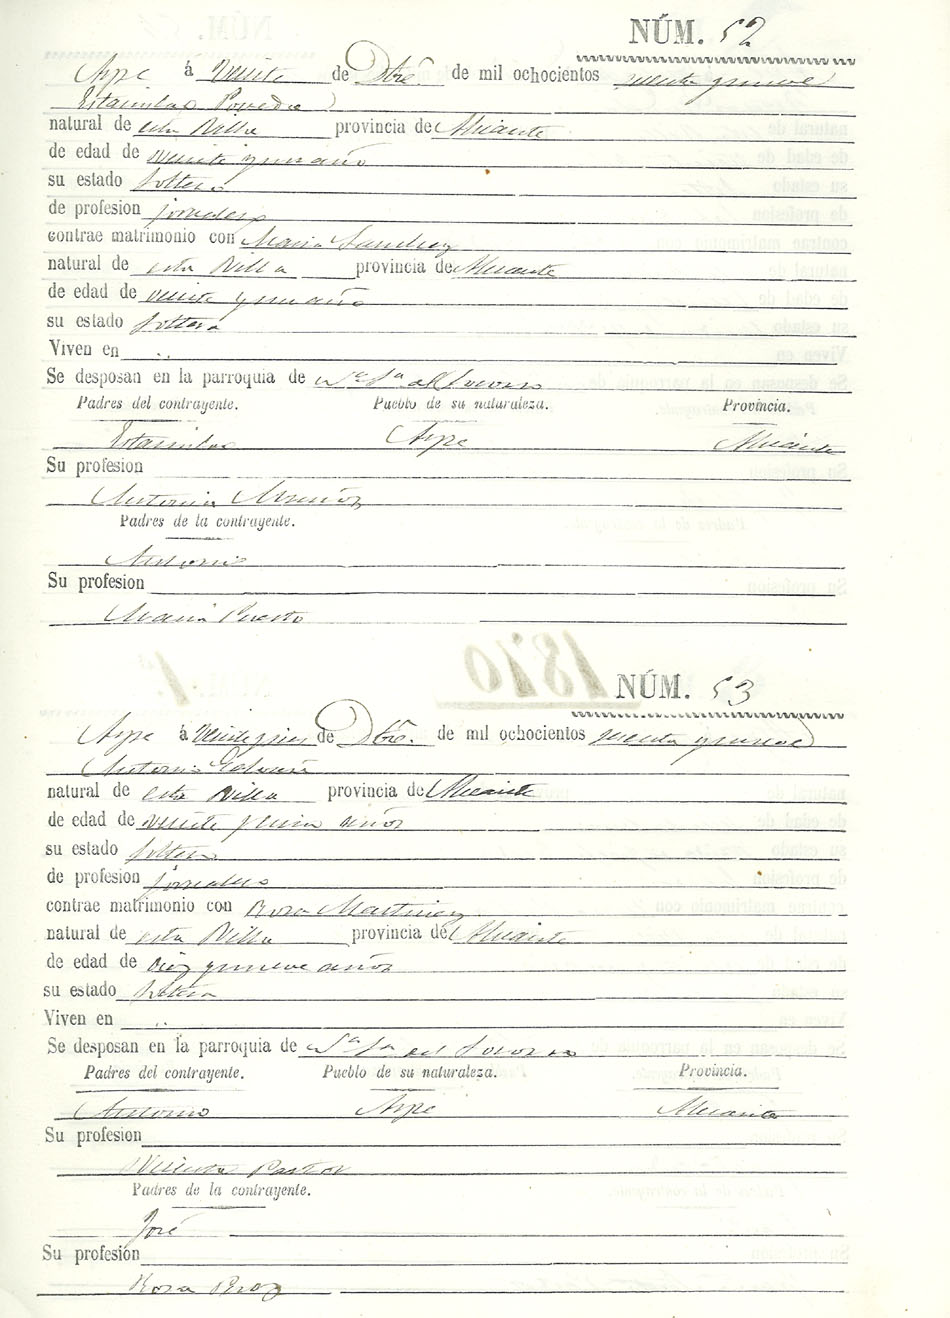 NÚM. 52
Aspe á Veinte de Dbre. de mil ochocientos sesenta y nueve
Estanislao Poveda
natural de esta Villa provincia de Alicante
de edad de veinte y un año
su estado Soltero
de profesion jornalero
contrae matrimonio con Maria Sanchez
natural de esta Villa provincia de Alicante
de edad de veinte y un año
su estado Soltera
Viven en ..
Se desposan en la parroquia de Na. Sa. del Socorro
Padres del contrayente. Pueblo de su naturaleza. Provincia.
Estanislao Aspe Alicante
Su profesion
Antonia
Padres de la contrayente.
Antonio
Su profesion
Maria Puerto
1870
NÚM. 1º
NÚM. 53
Aspe á de Dbre. de mil ochocientos sesenta y nueve
Antonio
natural de esta Villa provincia de Alicante
de edad de veinte y un años
su estado Soltero
de profesion jornalero
contrae matrimonio con Rosa Martinez
natural de esta Villa provincia de Alicante
de edad de diez y nueve años
su estado Soltera
Viven en ..
Se desposan en la parroquia de Na. Sa. del Socorro
Padres del contrayente. Pueblo de su naturaleza. Provincia.
Antonio Aspe Alicante
Su profesion
Vicenta Pastor
Padres de la contrayente.
José
Su profesión
Rosa